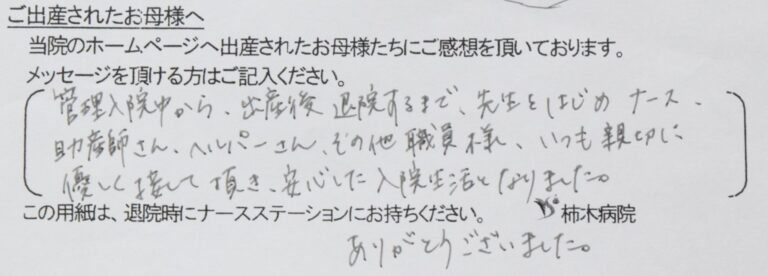 ご出産されたお母様へ
当院のホームページへ出産されたお母様たちにご感想を頂いております。
メッセージを頂ける方はご記入ください。
管理入院中から、出産後退院するまで、先生をはじめナース、
助産師さん、ヘルパーさん、その他職員様、いつも親切に
優しく接して頂き、安心した入院生活となりました。
この用紙は、退院時にナースステーションにお持ちください。 柿木病院
ありがとうございました。